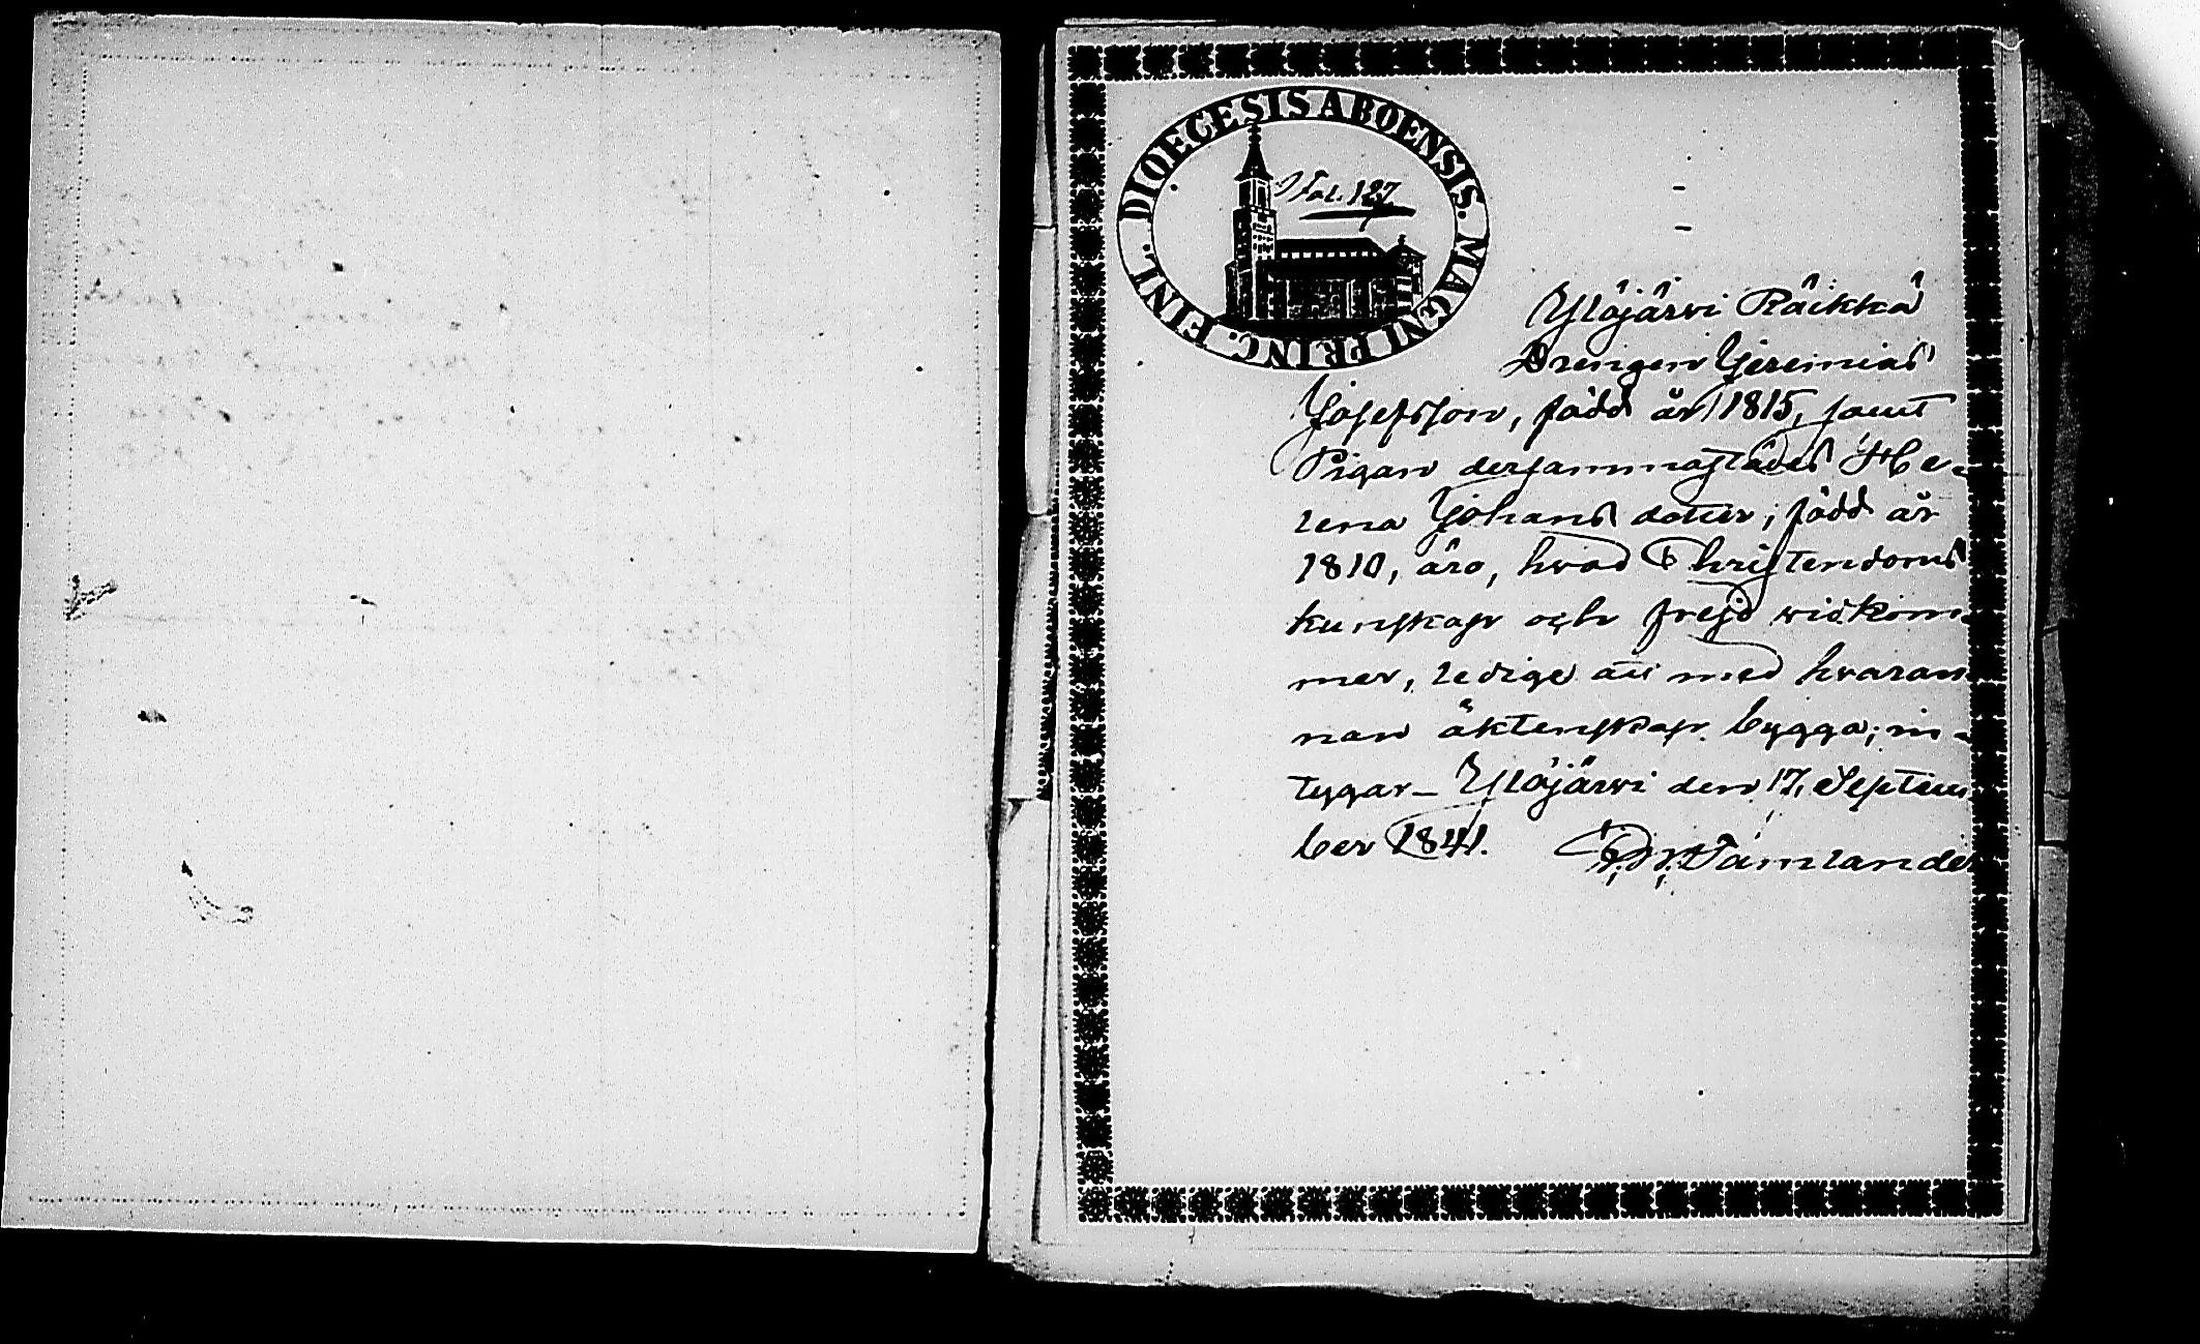 DIOECESIS ABOENSIS. MAGNI PRINC. FINL.
Fol. 127
Ylöjärvi Räikkä
Drengen Jeremias
Josefsson, född år 1815, samt
Pigan dersammastädes He-
lena Johansdotter, född år
1810, äro, hvad Christendoms
kunskap och frejd widkom-
mer, ledige att med hvaran-
nan äktenskap bygga; in-
tygar_ Ylöjärvi den 17. Septem
ber 1841.
Tamlander